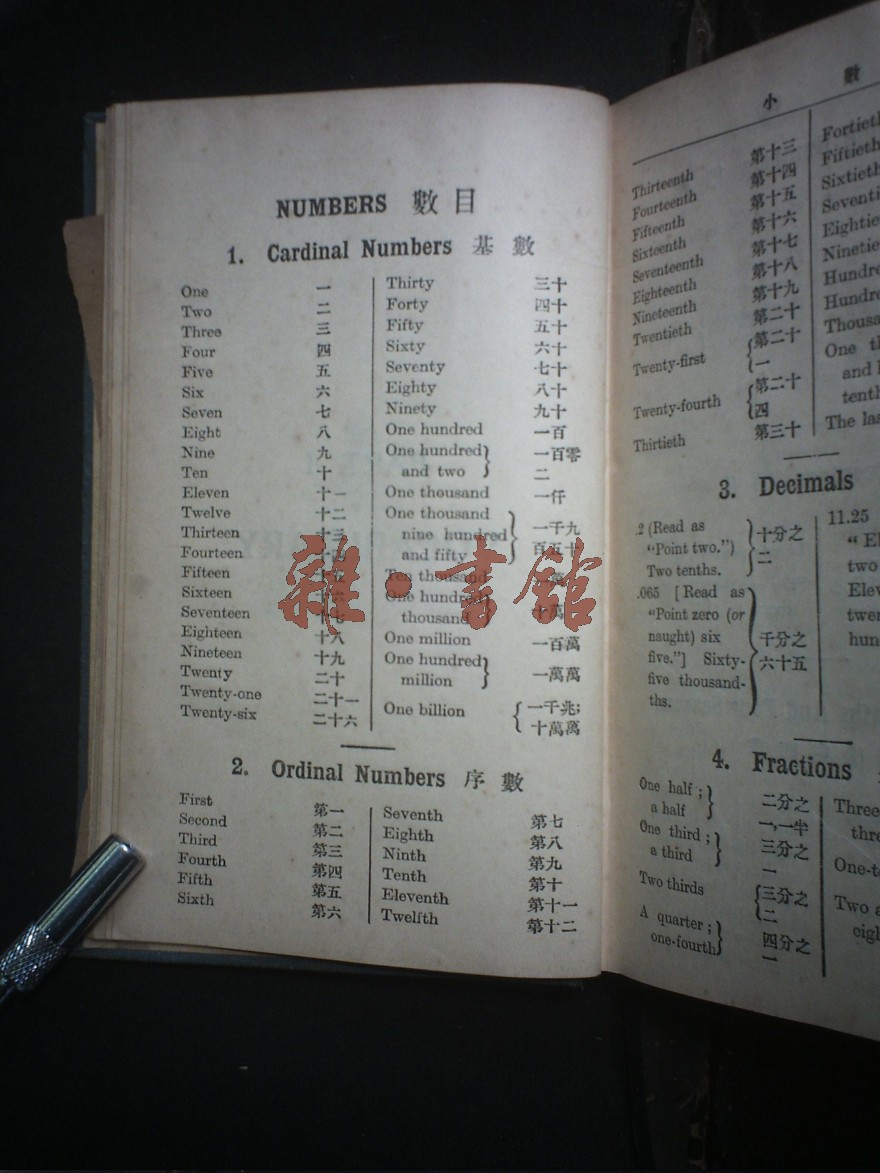 NUMBERS 數目
1. Cardinal Numbers 基數
One 一
Two 二
Three 三
Four 四
Five 五
Six 六
Seven 七
Eight 八
Nine 九
Ten 十
Eleven 十一
Twelve 十二
Thirteen 十三
Fourteen 十四
Fifteen
Sixteen
Seventeen 十七
Eighteen 十八
Nineteen 十九
Twenty 二十
Twenty-one 二十一
Twenty-six 二十六
Thirty 三十
Forty 四十
Fifty 五十
Sixty 六十
Seventy 七十
Eighty 八十
Ninety 九十
One hundred 一百
One hundred 一百零
and two 二
One thousand 一仟
One thousand
nine hundred 一千九
and fifty 百五十
Ten thousand
One hundred
thousand 十萬
One million 一百萬
One hundred
million 一萬萬
One billion 一千兆;
十萬萬
2. Ordinal Numbers 序數
First 第一
Second 第二
Third 第三
Fourth 第四
Fifth 第五
Sixth 第六
Seventh 第七
Eighth 第八
Ninth 第九
Tenth 第十
Eleventh 第十一
Twelfth 第十二
雜·書館
小 數
Thirteenth 第十三
Fourteenth 第十四
Fifteenth 第十五
Sixteenth 第十六
Seventeenth 第十七
Eighteenth 第十八
Nineteenth 第十九
Twentieth 第二十
Twenty-first 第二十
一
Twenty-fourth 第二十
四
Thirtieth 第三十
Fortieth
Fiftieth
Sixtieth
Seventi
Eightie
Ninetie
Hundr
Hundr
Thousa
One th
and h
tenth
The las
3. Decimals
.2 (Read as 十分之
"Point two.") 二
Two tenths.
.065 [Read as
"Point zero (or
naught) six 千分之
five."] Sixty- 六十五
five thousand-
ths.
11.25
"El
two
Elev
twen
hun
4. Fractions
One half; 二分之
a half 一,一半
One third; 三分之
a third 一
Two thirds 三分之
二
A quarter; 四分之
one-fourth 一
Three
thre
One-te
Two a
eigh